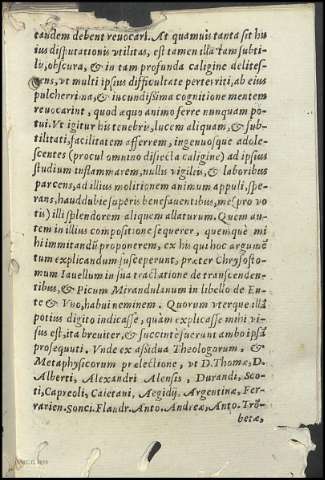 tandem debent reuocari. At quamuis tanta sit hu
ius disputationis vtilitas, est tamen illa tam subti-
lis, obscura, & in tam profunda caligine delites-
cens, vt multi ipsius difficultate perterriti, ab eius
pulcherrima, & iucundissima cognitione mentem
reuocarint, quod æquo animo ferre nunquam po-
tui. Vt igitur his tenebris, lucem aliquam, & sub-
tilitati, facilitatem afferrem, ingenuosque adole-
scentes (procul omnino disiecta caligine) ad ipsius
studium inflammarem, nullis vigilijs, & laboribus
parcens, ad illius molitionem animum appuli, spe-
rans, haud dubie superis benefauentibus, me (pro vo
tis) illi splendorem aliquem allaturum. Quem au-
tem in illius compositione sequerer, quemquè mi
hi imitandũ proponerem, ex his qui hoc argumē
tum explicandum susceperunt, præter Chrysosto-
mum Iauellum in sua tractatione de transcenden-
tibus, & Picum Mirandulanum in libello de En-
te & Vno, habui neminem. Quorum vterque illã
potius digito indicasse, quàm explicasse mihi vi-
sus est, ita breuiter, & succintè fuerunt ambo ipsã
prosequuti. Vnde ex assidua Theologorum, &
Metaphysicorum prælectione, vt D. Thomæ, D.
Alberti, Alexandri Alensis, Durandi, Sco-
ti, Capreoli, Caietani, Aegidij, Argentinæ, Fer-
rarien. Sonci. Flandr. Anto. Andreæ, Anto. Trõ-
betæ,